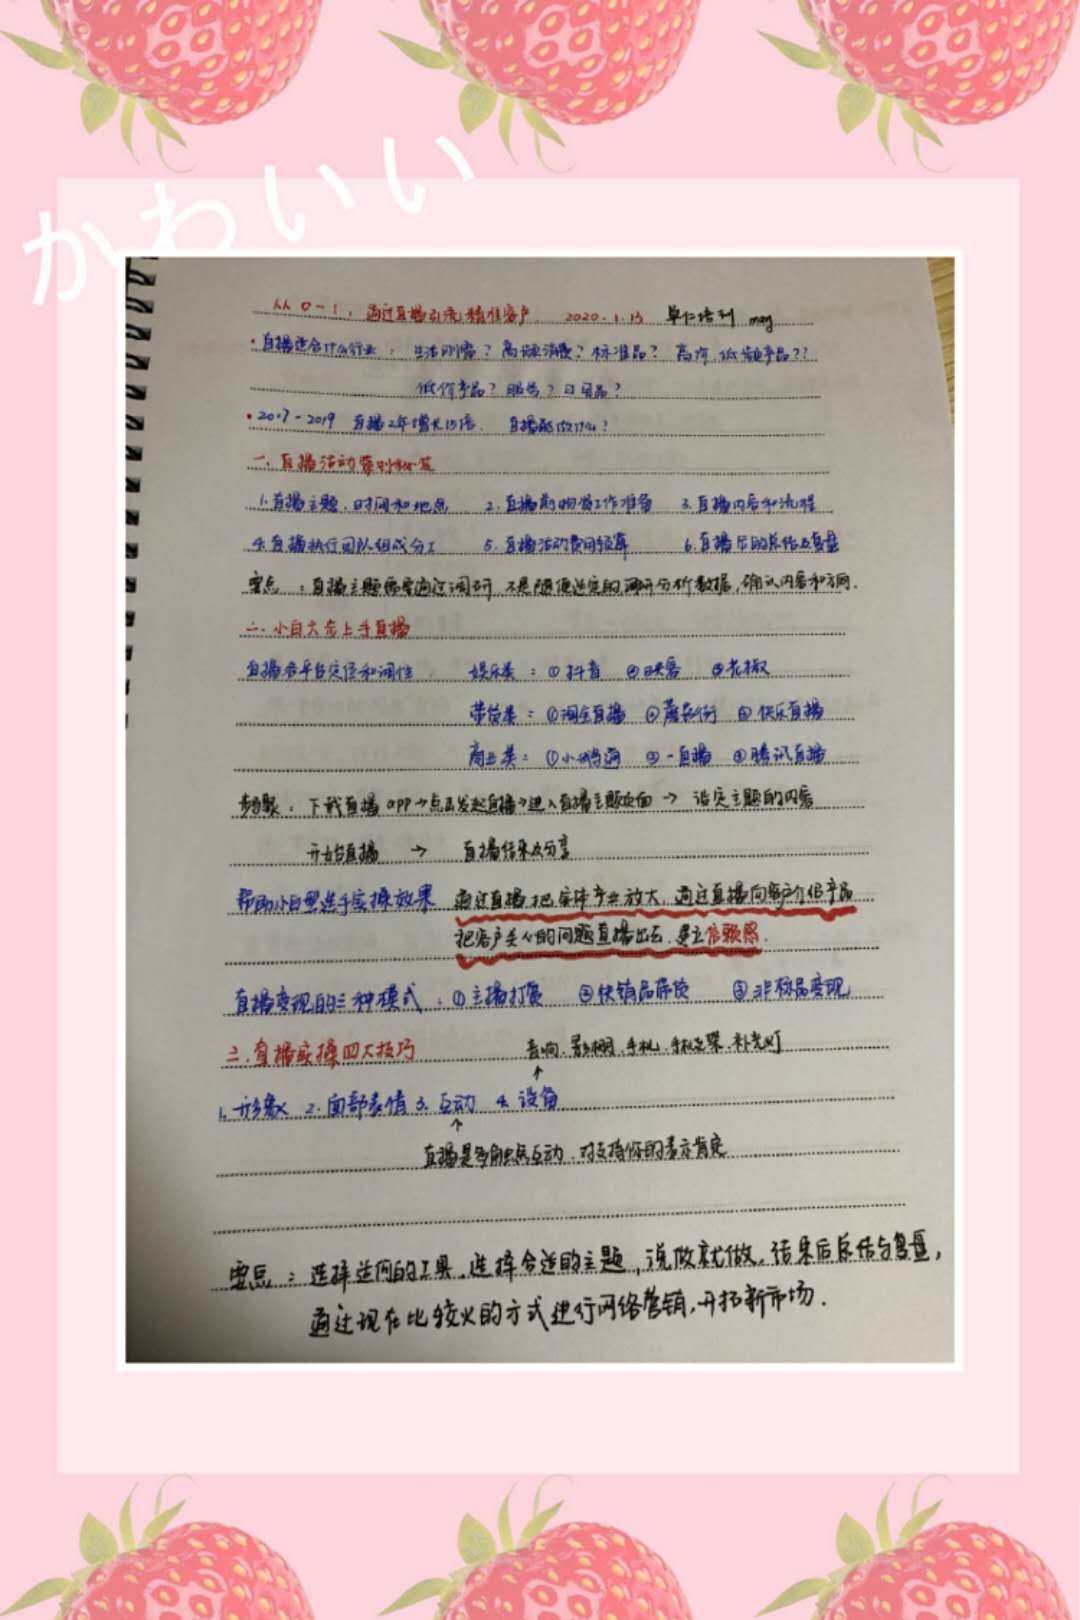 かわいい
从0-1，通过直播引流精准客户 2020.1.13 单仁培训 may
·直播适合什么行业：生活刚需？高频消费？标准品？高价、低频产品？？
低价产品？服务？日用品？
·2017-2019 直播2年增长15倍． 直播能做什么？
一．直播活动策划
1.直播主题、时间和地点 2.直播前物资工作准备 3.直播内容和流程
4.直播执行团队组成分工 5.直播活动费用预算 6.直播后的总结及复盘
要点：直播主题需要通过调研，不是随便选定的，调研分析数据，确认内容和方向．
二．小白六步上手直播
直播各平台定位和调性 娱乐类：①抖音 ②映客 ③花椒
带货类：①淘宝直播 ②蘑菇街 ③快乐直播
商业类：①小鹅通 ②一直播 ③腾讯直播
步骤：下载直播app→点击发起直播→进入直播主题页面→设定主题的内容
开始直播 → 直播结果及分享
帮助小白型选手实操效果 通过直播把实体产业放大，通过直播向客户介绍产品
把客户关心的问题直播出去，建立信赖感．
直播变现的三种模式：①主播打赏 ②快销品带货 ③非标品变现
三．直播实操四大技巧 音响、手机、手机支架、补光灯
1.形象 2.面部表情 3.互动 4.设备
直播是多触点互动．对支持你的表示肯定
要点：选择适网的工具，选择合适的主题，说做就做，结束后总结与复盘，
通过现在比较火的方式进行网络营销，开拓新市场．